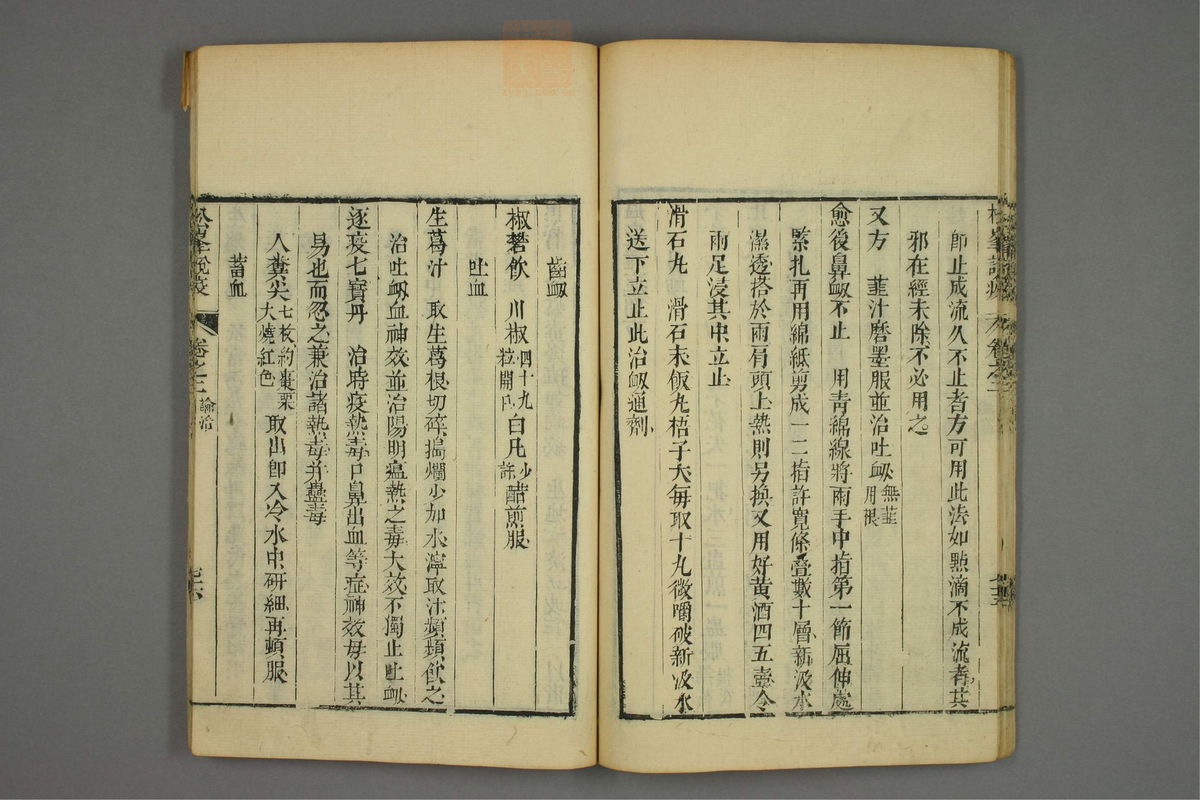 即止成流久不止者方可用此法如點滴不成流者其
邪在經未除不必用之
又方　韮汁磨墨服並治吐衂無韮用根
愈後鼻衂不止　用青綿線將兩手中指第一節屈伸處
緊扎再用綿紙剪成一二指許寬條疊數十層新汲水
濕透搭於兩肩頭上熱則另換又用好黃酒四五壺令
兩足浸其中立止
滑石丸　滑石末飯丸梧子大每取十丸微嚼破新汲水
送下立止此治衂通劑
齒衂
椒礬飲　川椒四十九粒開口白凡少許醋煎服
吐血
生葛汁　取生葛根切碎搗爛少加水濘取汁頻頻飲之
治吐衂血神效並治陽明瘟熱之毒大效不獨止吐衂
逐疫七寶丹　治時疫熱毒口鼻出血等症神效毋以其
易也而忽之兼治諸熱毒并蠱毒
人糞尖七枚約棗栗大燒紅色取出即入冷水中研細再頓服
蓄血
松峯說疫　卷之三　論治　七六